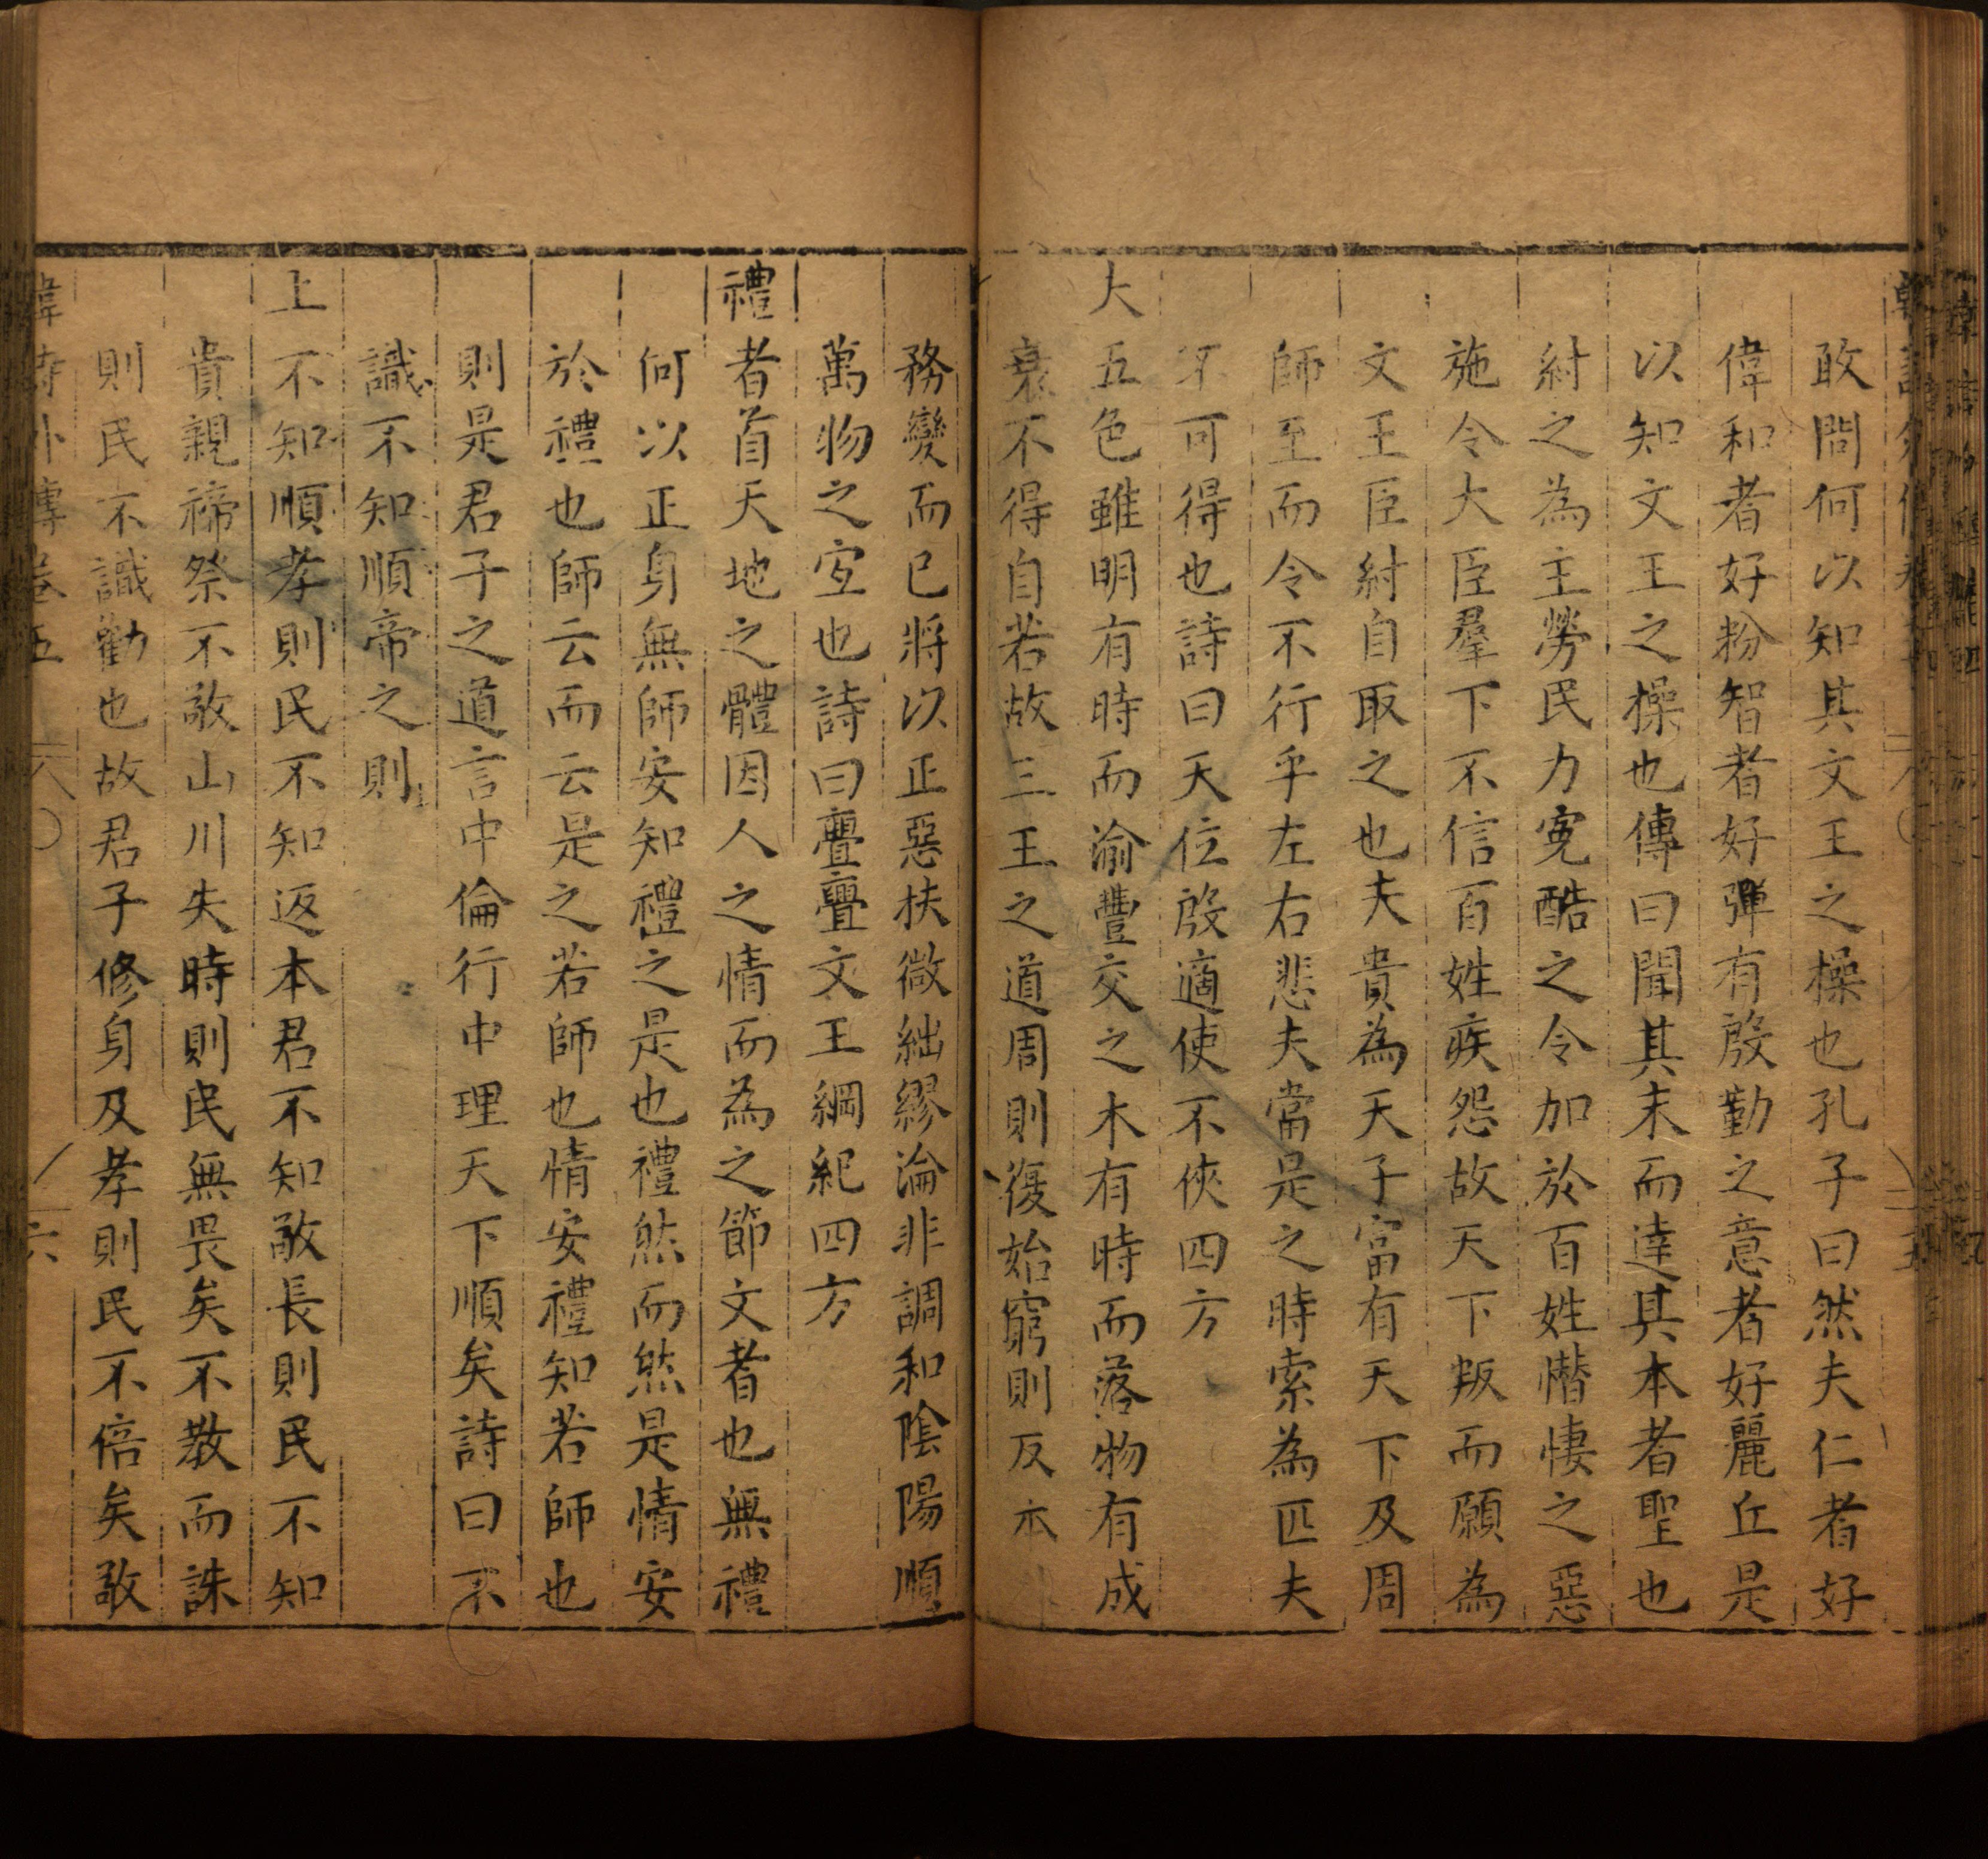 敢問何以知其文王之操也孔子曰然夫仁者好
偉和者好粉智者好彈有殷勤之意者好麗丘是
以知文王之操也傳曰聞其末而達其本者聖也
紂之為主勞民力寃酷之令加於百姓憯悽之惡
施令大臣羣下不信百姓疾怨故天下叛而願為
文王臣紂自取之也夫貴為天子富有天下及周
師至而令不行乎左右悲夫當是之時索為匹夫
不可得也詩曰天位殷適使不俠四方
大五色雖明有時而渝豐交之木有時而落物有成
衰不得自若故三王之道周則復始窮則反本
務變而已將以正惡扶微絀繆淪非調和陰陽順
萬物之宐也詩曰亹亹文王綱紀四方
禮者首天地之體因人之情而為之節文者也無禮
何以正身無師安知禮之是也禮然而然是情安
於禮也師云而云是之若師也情安禮知若師也
則是君子之道言中倫行中理天下順矣詩曰不
識不知順帝之則
上不知順孝則民不知返本君不知敬長則民不知
貴親禘祭不敬山川失時則民無畏矣不教而誅
則民不識勸也故君子修身及孝則民不倍矣敬
韓詩外傳卷五 六